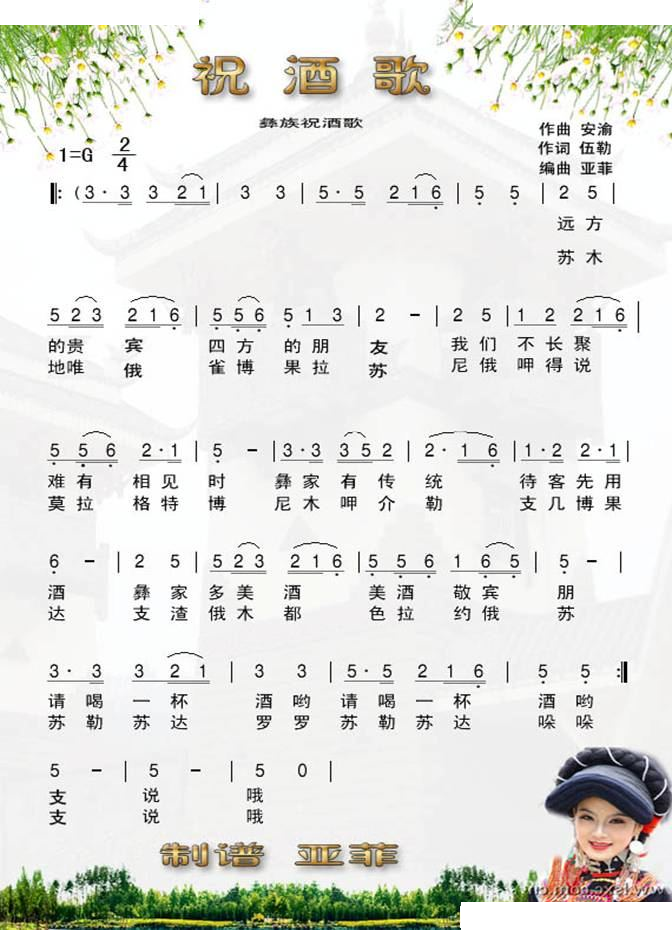 祝酒歌
彝族祝酒歌
作曲 安渝
作词 伍勒
编曲 亚菲
1=G 2/4
‖: (3· 3 3 2 1 | 3 3 | 5· 5 2 1 6 | 5 5 | 2 5 |
远方
苏木
5 2 3 2 1 6 | 5 5 6 5 1 3 | 2 - | 2 5 | 1 2 2 1 6 |
的贵宾 四方的朋友 我们不长聚
地唯俄 雀博果拉苏 尼俄呷得说
5 5 6 2·1 | 5 - | 3·3 3 5 2 | 2·1 6 | 1·2 2·5 |
难有相见时 彝家有传统 待客先用
莫拉格特博 尼木呷介勒 支几博果
6 - | 2 5 | 5 2 3 2 1 6 | 5 5 6 1 6 5 | 5 - |
酒 彝家多美酒 美酒敬宾朋
达 支渣俄木都 色拉约俄苏
3· 3 3 2 1 | 3 3 | 5· 5 2 1 6 | 5 5 :‖
请喝一杯酒哟请喝一杯酒哟
苏勒苏达罗罗苏勒苏达哚哚
5 - | 5 - | 5 0 |
支说哦
支说哦
制谱 亚菲